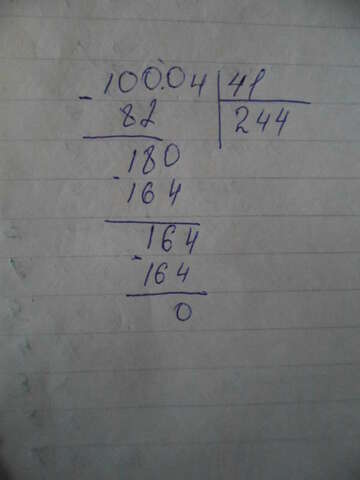 10004 41
- 82 244
180
- 164
164
- 164
0